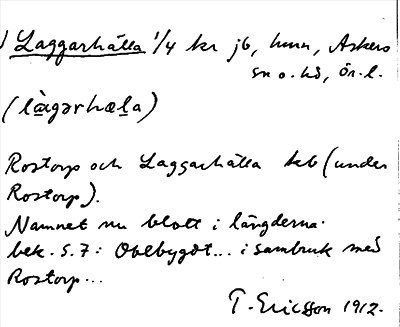 ) Laggarhälla 1/4 kr jb, hmn, Askers
sn o. hd, ör. l.
(là̱gərhæḻa)
Rostorp och Laggarhälla keb (under
Rostorp).
Namnet nu blott i längderna.
bek. S. 7: Obebyggt... i sambruk med
Rostorp...
T. Ericsson 1912.